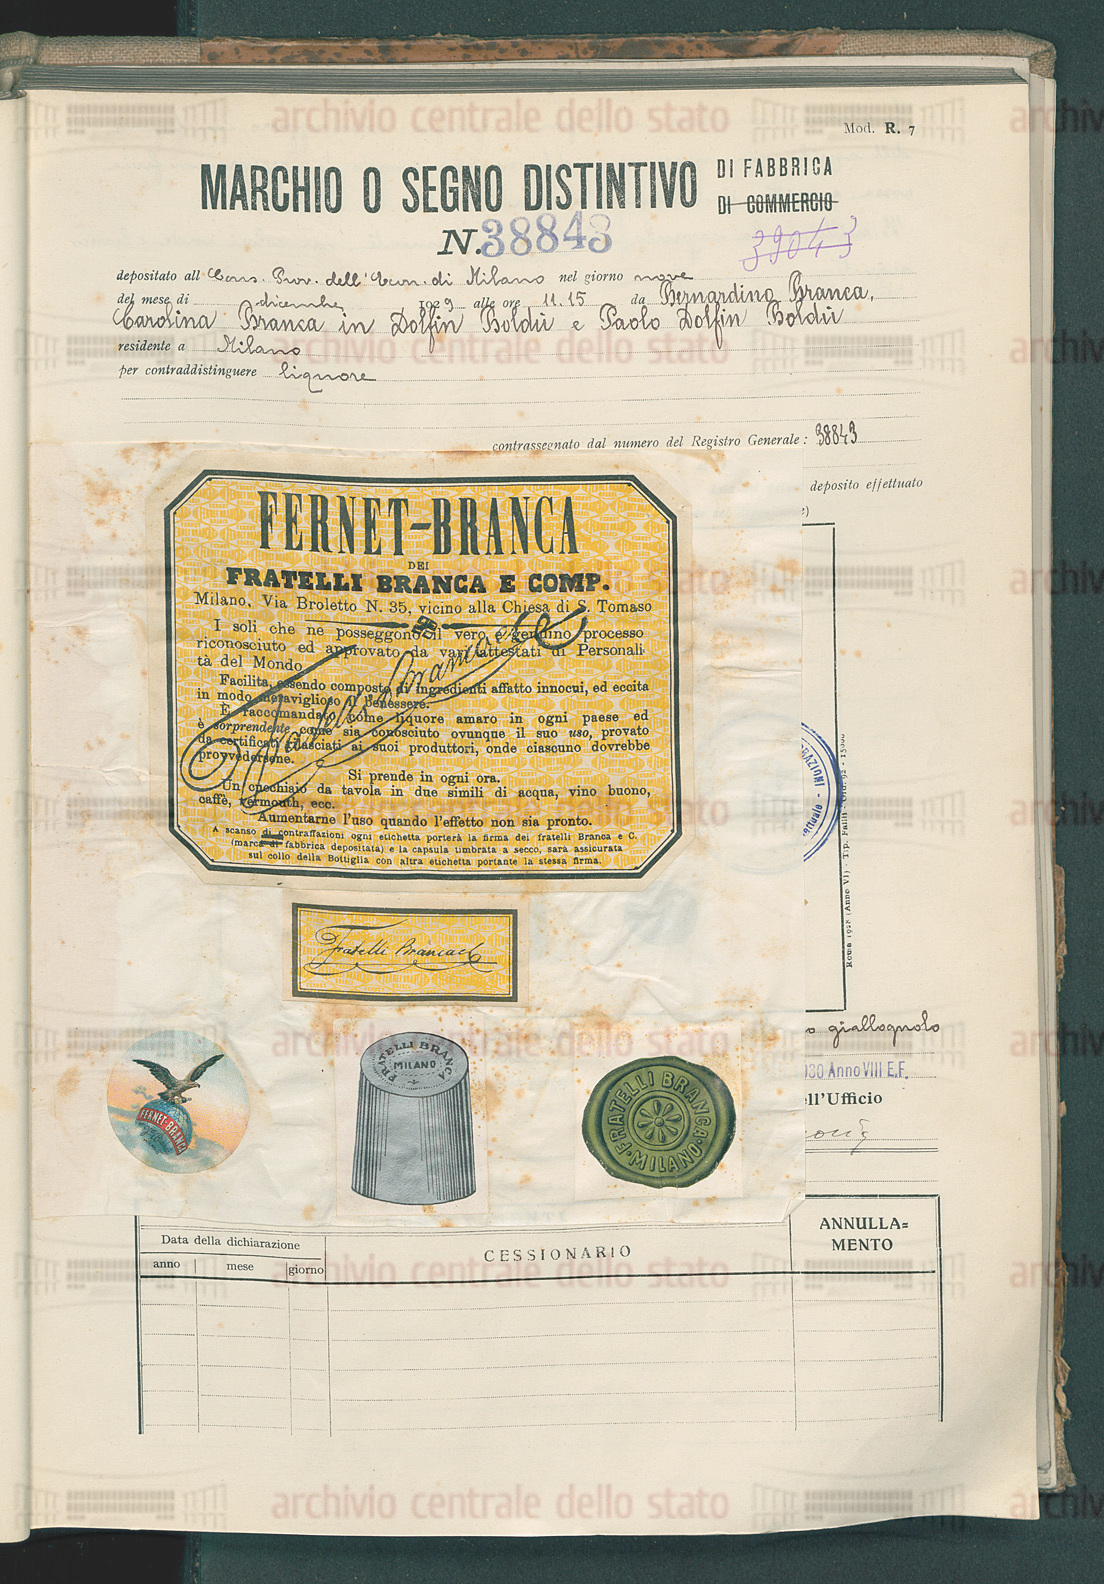 Mod. R. 7
MARCHIO O SEGNO DISTINTIVO DI FABBRICA
DI COMMERCIO
N. 38843
39043
depositato all Cons. Prov. dell'Econ. di Milano nel giorno nove
del mese di dicembre 1929 alle ore 11.15 da Bernardino Branca,
Carolina Branca in Dolfin Boldù e Paolo Dolfin Boldù
residente a Milano
per contraddistinguere liquore
contrassegnato dal numero del Registro Generale: 38843
deposito effettuato
FERNET-BRANCA
DEI
FRATELLI BRANCA E COMP.
Milano, Via Broletto N. 35, vicino alla Chiesa di S. Tomaso
I soli che ne posseggono il vero e genuino processo
riconosciuto ed approvato da vari attestati di Personali
tà del Mondo
Facilita, essendo composto di ingredienti affatto innocui, ed eccita
in modo meraviglioso il benessere.
È raccomandato come liquore amaro in ogni paese ed
è sorprendente come sia conosciuto ovunque il suo uso, provato
da certificati rilasciati ai suoi produttori, onde ciascuno dovrebbe
provvedersene.
Si prende in ogni ora.
Un cucchiaio da tavola in due simili di acqua, vino buono,
caffè, vermouth, ecc.
Aumentarne l'uso quando l'effetto non sia pronto.
A scanso di contraffazioni ogni etichetta porterà la firma dei fratelli Branca e C.
(marca di fabbrica depositata) e la capsula timbrata a secco, sarà assicurata
sul collo della Bottiglia con altra etichetta portante la stessa firma.
Fratelli Branca e C
Fratelli Branca e C
FERNET-BRANCA
FRATELLI BRANCA
MILANO
FRATELLI BRANCA
MILANO
giallognolo
Anno VIII E.F.
ll'Ufficio
Data della dichiarazione
anno mese giorno
CESSIONARIO
ANNULLA=
MENTO
archivio centrale dello stato